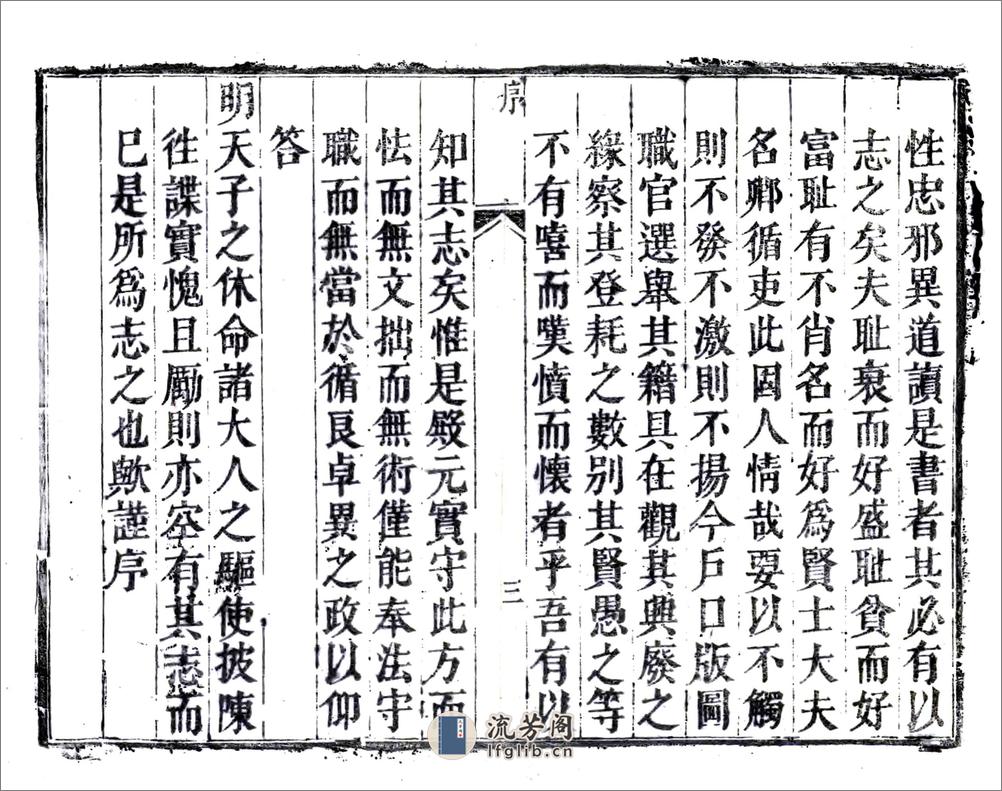 性忠邪異道讀是書者其必有以
志之矣夫耻衰而好盛耻貧而好
富耻有不肖名而好為賢士大夫
名卿循吏此因人情哉要以不觸
則不發不激則不揚今戶口版圖
職官選舉其籍具在觀其興廢之
緣察其登耗之數別其賢愚之等
不有嘻而嘆憤而懷者乎吾有以
序
三
知其志矣惟是殿元實守此方而
怯而無文拙而無術僅能奉法守
職而無當於循良卓異之政以仰
答
明天子之休命諸大人之驅使披陳
徃諜實愧且勵則亦空有其志而
巳是所為志之也歟謹序
流芳阁
lfglib.cn